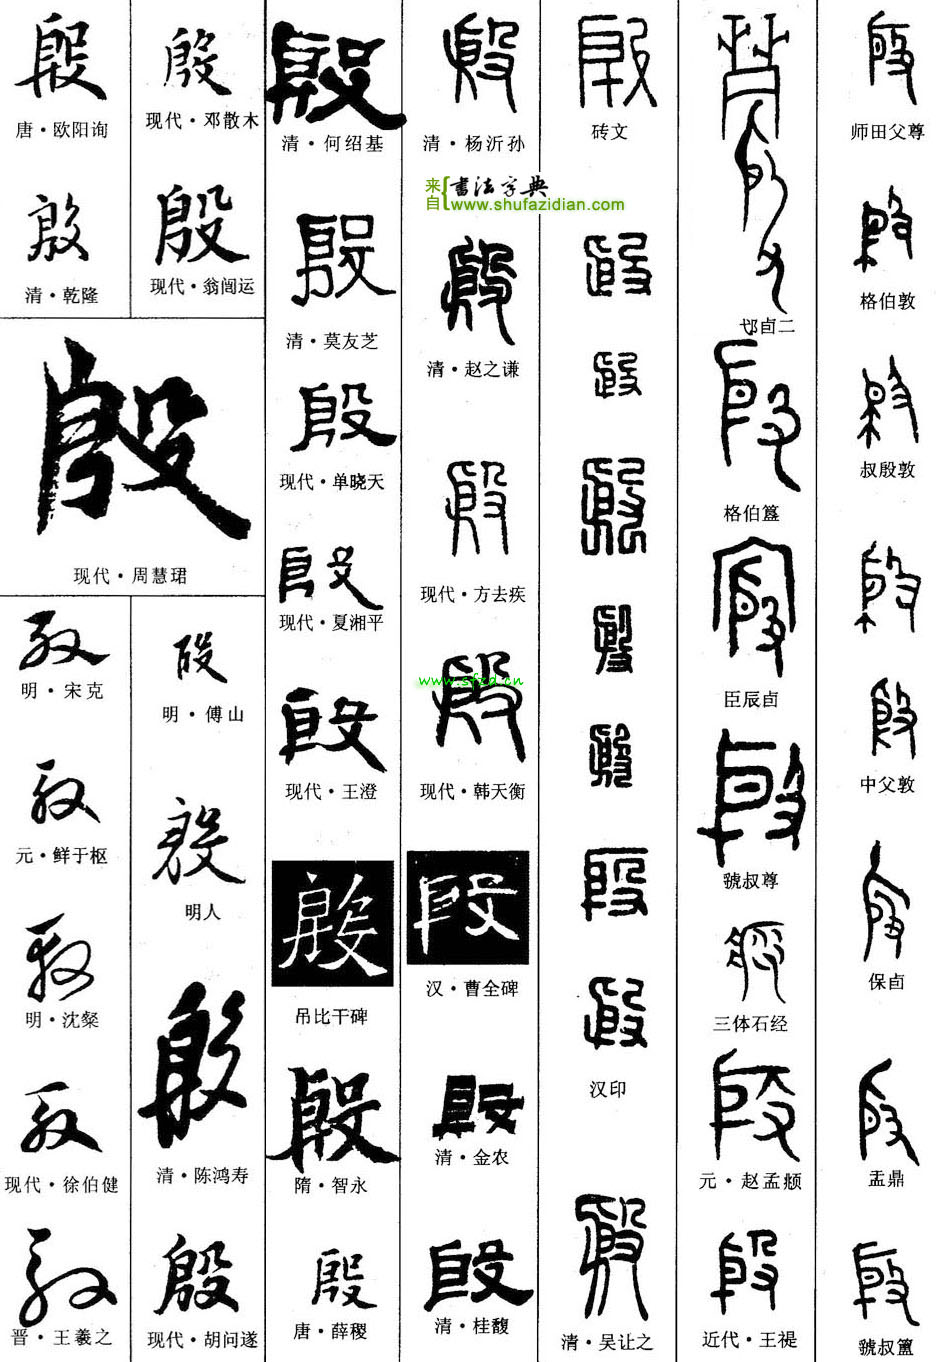 殷
唐·欧阳询
殷
清·乾隆
殷
现代·邓散木
殷
现代·翁闿运
殷
现代·周慧珺
殷
明·宋克
殷
元·鲜于枢
殷
明·沈粲
殷
现代·徐伯健
殷
晋·王羲之
殷
明·傅山
殷
明人
殷
清·陈鸿寿
殷
现代·胡问遂
殷
清·何绍基
殷
清·莫友芝
殷
现代·单晓天
殷
现代·夏湘平
殷
现代·王澄
殷
吊比干碑
殷
隋·智永
殷
唐·薛稷
殷
清·杨沂孙
来自{书法字典
www.shufazidian.com
殷
清·赵之谦
殷
现代·方去疾
www.sfzd.cn
殷
现代·韩天衡
殷
汉·曹全碑
殷
清·金农
殷
清·桂馥
殷
砖文
殷
殷
殷
殷
殷
殷
殷
汉印
殷
清·吴让之
卣二
殷
格伯簋
殷
臣辰卣
殷
虢叔尊
殷
三体石经
殷
元·赵孟頫
殷
近代·王禔
殷
师田父尊
殷
格伯敦
殷
叔殷敦
殷
殷
中父敦
殷
保卣
殷
盂鼎
殷
虢叔簠